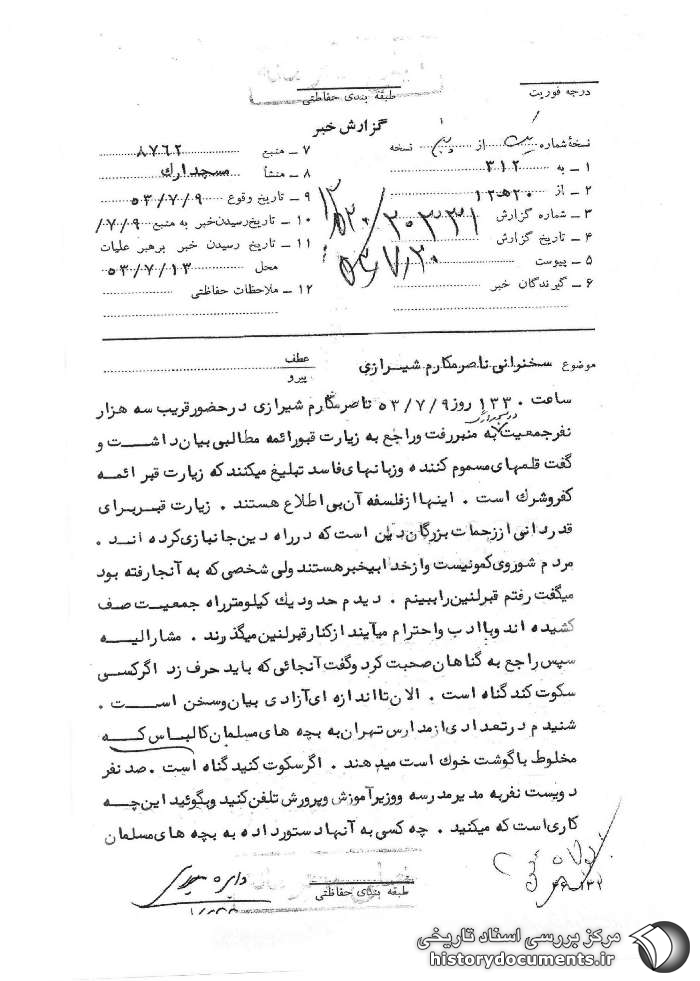 درجه فوریت
طبقه بندی حفاظتی
گزارش خبر
نسخهٔ شماره یک از پنج نسخه
۱ ــ به ۳۱۲
۲ ــ از ۲۰ ه ۱۲
۳ ــ شماره گزارش ۲۰۳۳۱
۴ ــ تاریخ گزارش ۵۳/۷/۲۰
۵ ــ پیوست
۶ ــ گیرندگان خبر
۷ ــ منبع ۸۷۶۲
۸ ــ منشأ مسجد ارك
۹ ــ تاریخ وقوع ۵۳/۷/۹
۱۰ ــ تاریخ رسیدن خبر به منبع ۷/۹/
۱۱ ــ تاریخ رسیدن خبر برهبر عملیات
محل ۵۳/۷/۱۳
۱۲ ــ ملاحظات حفاظتی
موضوع سخنرانی ناصر مکارم شیرازی
عطف
پیرو
ساعت ۱۳۳۰ روز ۵۳/۷/۹ ناصر مکارم شیرازی در حضور قریب سه هزار
نفر جمعیت به منبر رفت و راجع به زیارت قبور ائمه مطالبی بیان داشت و
گفت قلمهای مسموم کننده و زبانهای فاسد تبلیغ میکنند که زیارت قبر ائمه
کفر و شرك است . اینها از فلسفه آن بی اطلاع هستند . زیارت قبر برای
قدردانی از زحمات بزرگان دین است که در راه دین جانبازی کرده اند .
مردم شوروی کمونیست و از خدا بیخبر هستند ولی شخصی که به آنجا رفته بود
میگفت رفتم قبر لنین را ببینم . دیدم حدود یك کیلومتر راه جمعیت صف
کشیده اند و با ادب و احترام میآیند از کنار قبر لنین میگذرند . مشارالیه
سپس راجع به گناهان صحبت کرد و گفت آنجائی که باید حرف زد اگر کسی
سکوت کند گناه است . الان تا اندازه ای آزادی بیان و سخن است .
شنیدم در تعدادی از مدارس تهران به بچه های مسلمان کالباس که
مخلوط با گوشت خوك است میدهند . اگر سکوت کنید گناه است . صد نفر
دویست نفر به مدیر مدرسه و وزیر آموزش و پرورش تلفن کنید و بگوئید این چه
کاری است که میکنید . چه کسی به آنها دستور داده به بچه های مسلمان
طبقه بندی حفاظتی
مرکز بررسی اسناد تاریخی
historydocuments.ir